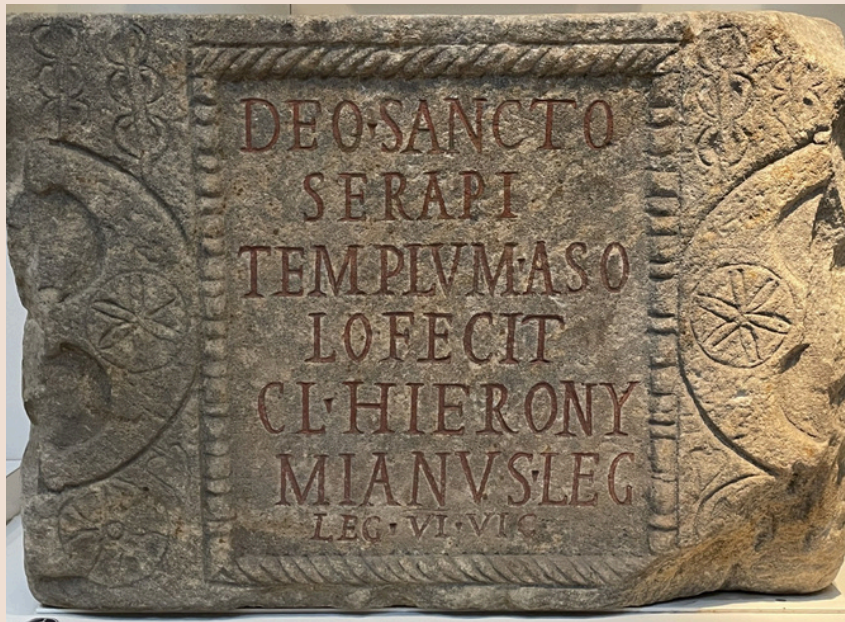 DEO·SANCTO
SERAPI
TEMPLVM·ASO
LOFECIT
CL·HIERONY
MIANVS·LEG
LEG·VI·VIC